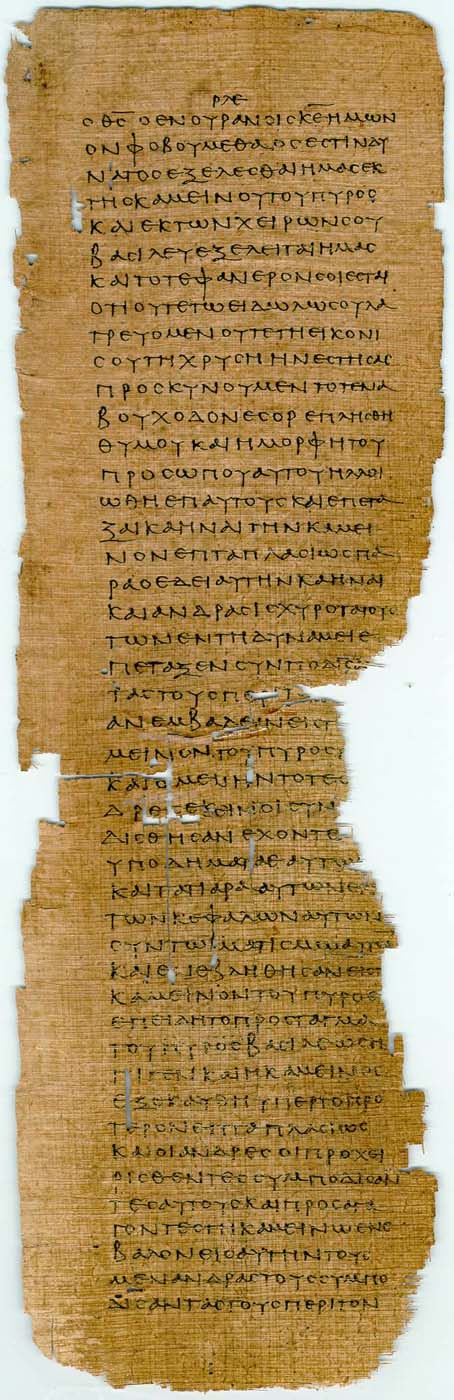 ΡΛΕ
ΟΘΣΟΕΝΟΥΡΑΝΟΙΣΚΣΗΜΩΝ
ΟΝΦΟΒΟΥΜΕΘΑΟΣΕΣΤΙΝΔΥ
ΝΑΤΟΣΕΞΕΛΕΣΘΑΙΗΜΑΣΕΚ
ΤΗΣΚΑΜΕΙΝΟΥΤΟΥΠΥΡΟΣ
ΚΑΙΕΚΤΩΝΧΕΙΡΩΝΣΟΥ
ΒΑΣΙΛΕΥΕΞΕΛΕΙΤΑΙΗΜΑΣ
ΚΑΙΤΟΤΕΦΑΝΕΡΟΝΣΟΙΕΣΤΑΙ
ΟΤΙΟΥΤΕΤΩΕΙΔΩΛΩΣΟΥΛΑ
ΤΡΕΥΟΜΕΝΟΥΤΕΤΗΕΙΚΟΝΙ
ΣΟΥΤΗΧΡΥΣΗΗΝΕΣΤΗΣΑΣ
ΠΡΟΣΚΥΝΟΥΜΕΝΤΟΤΕΝΑ
ΒΟΥΧΟΔΟΝΕΣΟΡΕΠΛΗΣΘΗ
ΘΥΜΟΥΚΑΙΗΜΟΡΦΗΤΟΥ
ΠΡΟΣΩΠΟΥΑΥΤΟΥΗΛΛΟΙ
ΩΘΗΕΠΑΥΤΟΥΣΚΑΙΕΠΕΤΑ
ΞΑΙΚΑΗΝΑΙΤΗΝΚΑΜΕΙ
ΝΟΝΕΠΤΑΠΛΑΣΙΩΣΠΑ
ΡΑΟΕΔΕΙΑΥΤΗΝΚΑΗΝΑΙ
ΚΑΙΑΝΔΡΑΣΙΣΧΥΡΟΤΑΤΟΥΣ
ΤΩΝΕΝΤΗΔΥΝΑΜΕΙΕ
ΠΕΤΑΞΕΝΣΥΝΠΟΔΙΣΑ
ΤΑΣΤΟΥΣΠΕΡΙΤ
ΑΝΕΜΒΑΛΕΙΝΕΙΣΤ
ΜΕΙΝΟΝΤΟΥΠΥΡΟΣ
ΚΑΙΟΜΕΝΗΝΤΟΤΕΟ
ΔΡΕΣΕΚΕΙΝΟΙΣΥΝ
ΔΙΣΘΗΣΑΝΕΧΟΝΤΕ
ΥΠΟΔΗΜΑΤΑΕΑΥΤΩ
ΚΑΙΤΑΠΑΡΑΑΥΤΩΝΕΠ
ΤΩΝΚΕΦΑΛΩΝΑΥΤΩΝ
ΣΥΝΤΩΙΜΑΤΙΣΜΩΑΥΤΩ
ΚΑΙΕΝΕΒΛΗΘΗΣΑΝΕΙΣΤ
ΚΑΜΕΙΝΟΝΤΟΥΠΥΡΟΣ
ΕΠΕΙΔΗΤΟΠΡΟΣΤΑΓΜΑ
ΤΟΥΠΥΡΟΣΒΑΣΙΛΕΩΣΗ
ΠΙΓΕΝΚΑΙΗΚΑΜΕΙΝΟΣ
ΕΞΕΚΑΥΘΗΥΠΕΡΤΟΠΡΟ
ΤΕΡΟΝΕΠΤΑΠΛΑΣΙΩΣ
ΚΑΙΟΙΑΝΔΡΕΣΟΙΠΡΟΧΕΙ
ΡΙΣΘΕΝΤΕΣΣΥΜΠΟΔΙΣΑΝ
ΤΕΣΑΥΤΟΥΣΚΑΙΠΡΟΣΑΓΑ
ΓΟΝΤΕΣΤΗΚΑΜΕΙΝΩΕΝΕ
ΒΑΛΟΝΕΙΣΑΥΤΗΝΤΟΥΣ
ΜΕΝΑΝΔΡΑΣΤΟΥΣΣΥΜΠΟ
ΔΙΣΑΝΤΑΣΤΟΥΣΠΕΡΙΤΟΝ